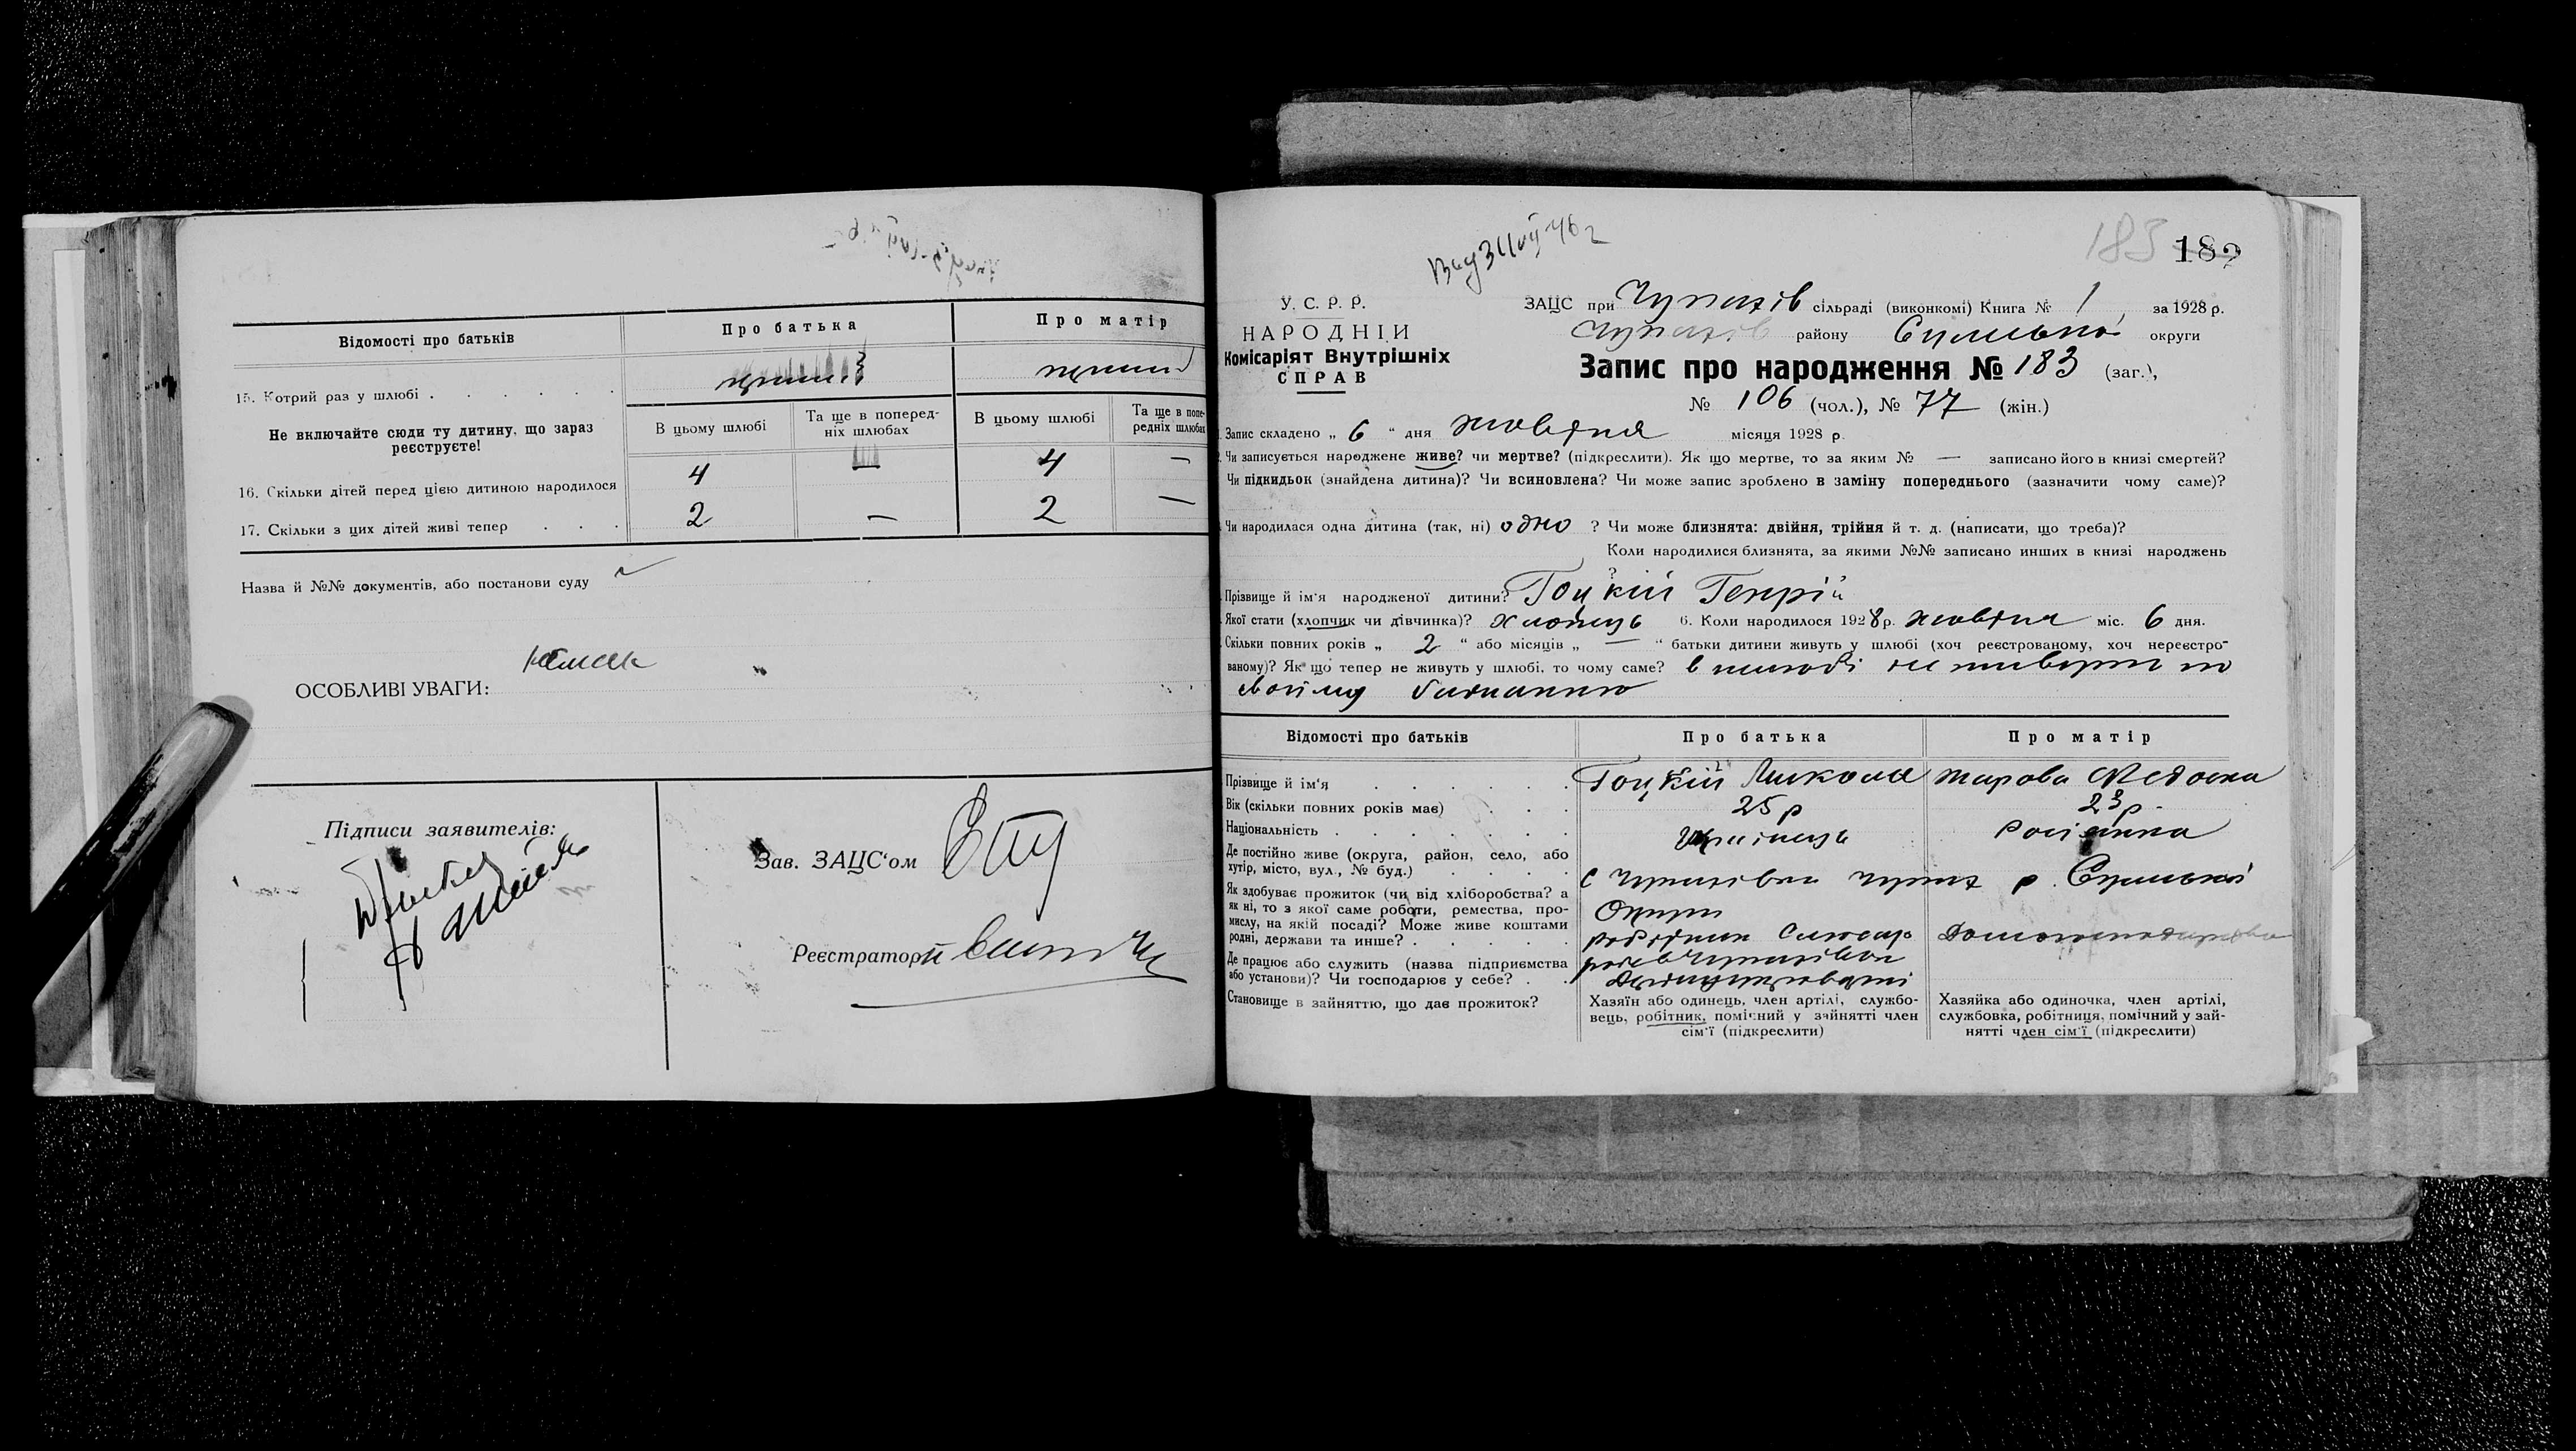 Відомості про батьків
Про батька
Про матір
15. Котрий раз у шлюбі
Не включайте сюди ту дитину, що зараз реєструєте!
В цьому шлюбі
Та ще в поперед-
ніх шлюбах
В цьому шлюбі
Та ще в попе-
редніх шлюбах
16. Скільки дітей перед цією дитиною народилося 4 — 4 —
17. Скільки з цих дітей живі тепер 2 — 2 —
Назва й №№ документів, або постанови суду
ОСОБЛИВІ УВАГИ: немає
Підписи заявителів:
Зав. ЗАЦС'ом
Реєстратор
183 182
У. С. Р. Р.
НАРОДНІЙ
Комісаріят Внутрішніх
СПРАВ
ЗАЦС при Чупахів сільраді (виконкомі) Книга № 1, за 1928 р.
Чупахів району Сумської округи
Запис про народження № 183 (заг.),
№ 106 (чол.), № 77 (жін.)
Запис складено „ 6 “ дня жовтня місяця 1928 р.
Чи записується народжене живе? чи мертве? (підкреслити). Як що мертве, то за яким № — записано його в книзі смертей?
Чи підкидьок (знайдена дитина)? Чи всиновлена? Чи може запис зроблено в заміну попереднього (зазначити чому саме)?
Чи народилася одна дитина (так, ні) одно ? Чи може близнята: двійня, трійня й т. д. (написати, що треба)?
Коли народилися близнята, за якими №№ записано инших в книзі народжень
?
Прізвище й ім'я народженої дитини? Гоцкій Генрій
Якої стати (хлопчик чи дівчинка)? хлопець 6. Коли народилося 1928 р. жовтня міс. 6 дня.
Скільки повних років „ 2 “ або місяців „ — “ батьки дитини живуть у шлюбі (хоч реєстрованому, хоч нереєстро-
ваному)? Як що тепер не живуть у шлюбі, то чому саме? в шлюбі не живут по
своїму бажанню
Відомості про батьків
Про батька
Про матір
Прізвище й ім'я Гоцкій Микола Жарова
Вік (скільки повних років має) 25 р 23 р.
Національність Українець Росіянка
Де постійно живе (округа, район, село, або
хутір, місто, вул., № буд.) с Чупахівка Чупах р. Сумської
Округи
Як здобуває прожиток (чи від хліборобства? а
як ні, то з якої саме роботи, ремества, про-
мислу, на якій посаді? Може живе коштами
родні, держави та инше?
робітник Слюсар
Домогосподарка
Де працює або служить (назва підприємства
або установи)? Чи господарює у себе?
Становище в зайняттю, що дає прожиток?
Хазяїн або одинець, член артілі, службо-
вець, робітник, помічний у зайнятті член
сім'ї (підкреслити)
Хазяйка або одиночка, член артілі,
службовка, робітниця, помічний у зай-
нятті член сім'ї (підкреслити)